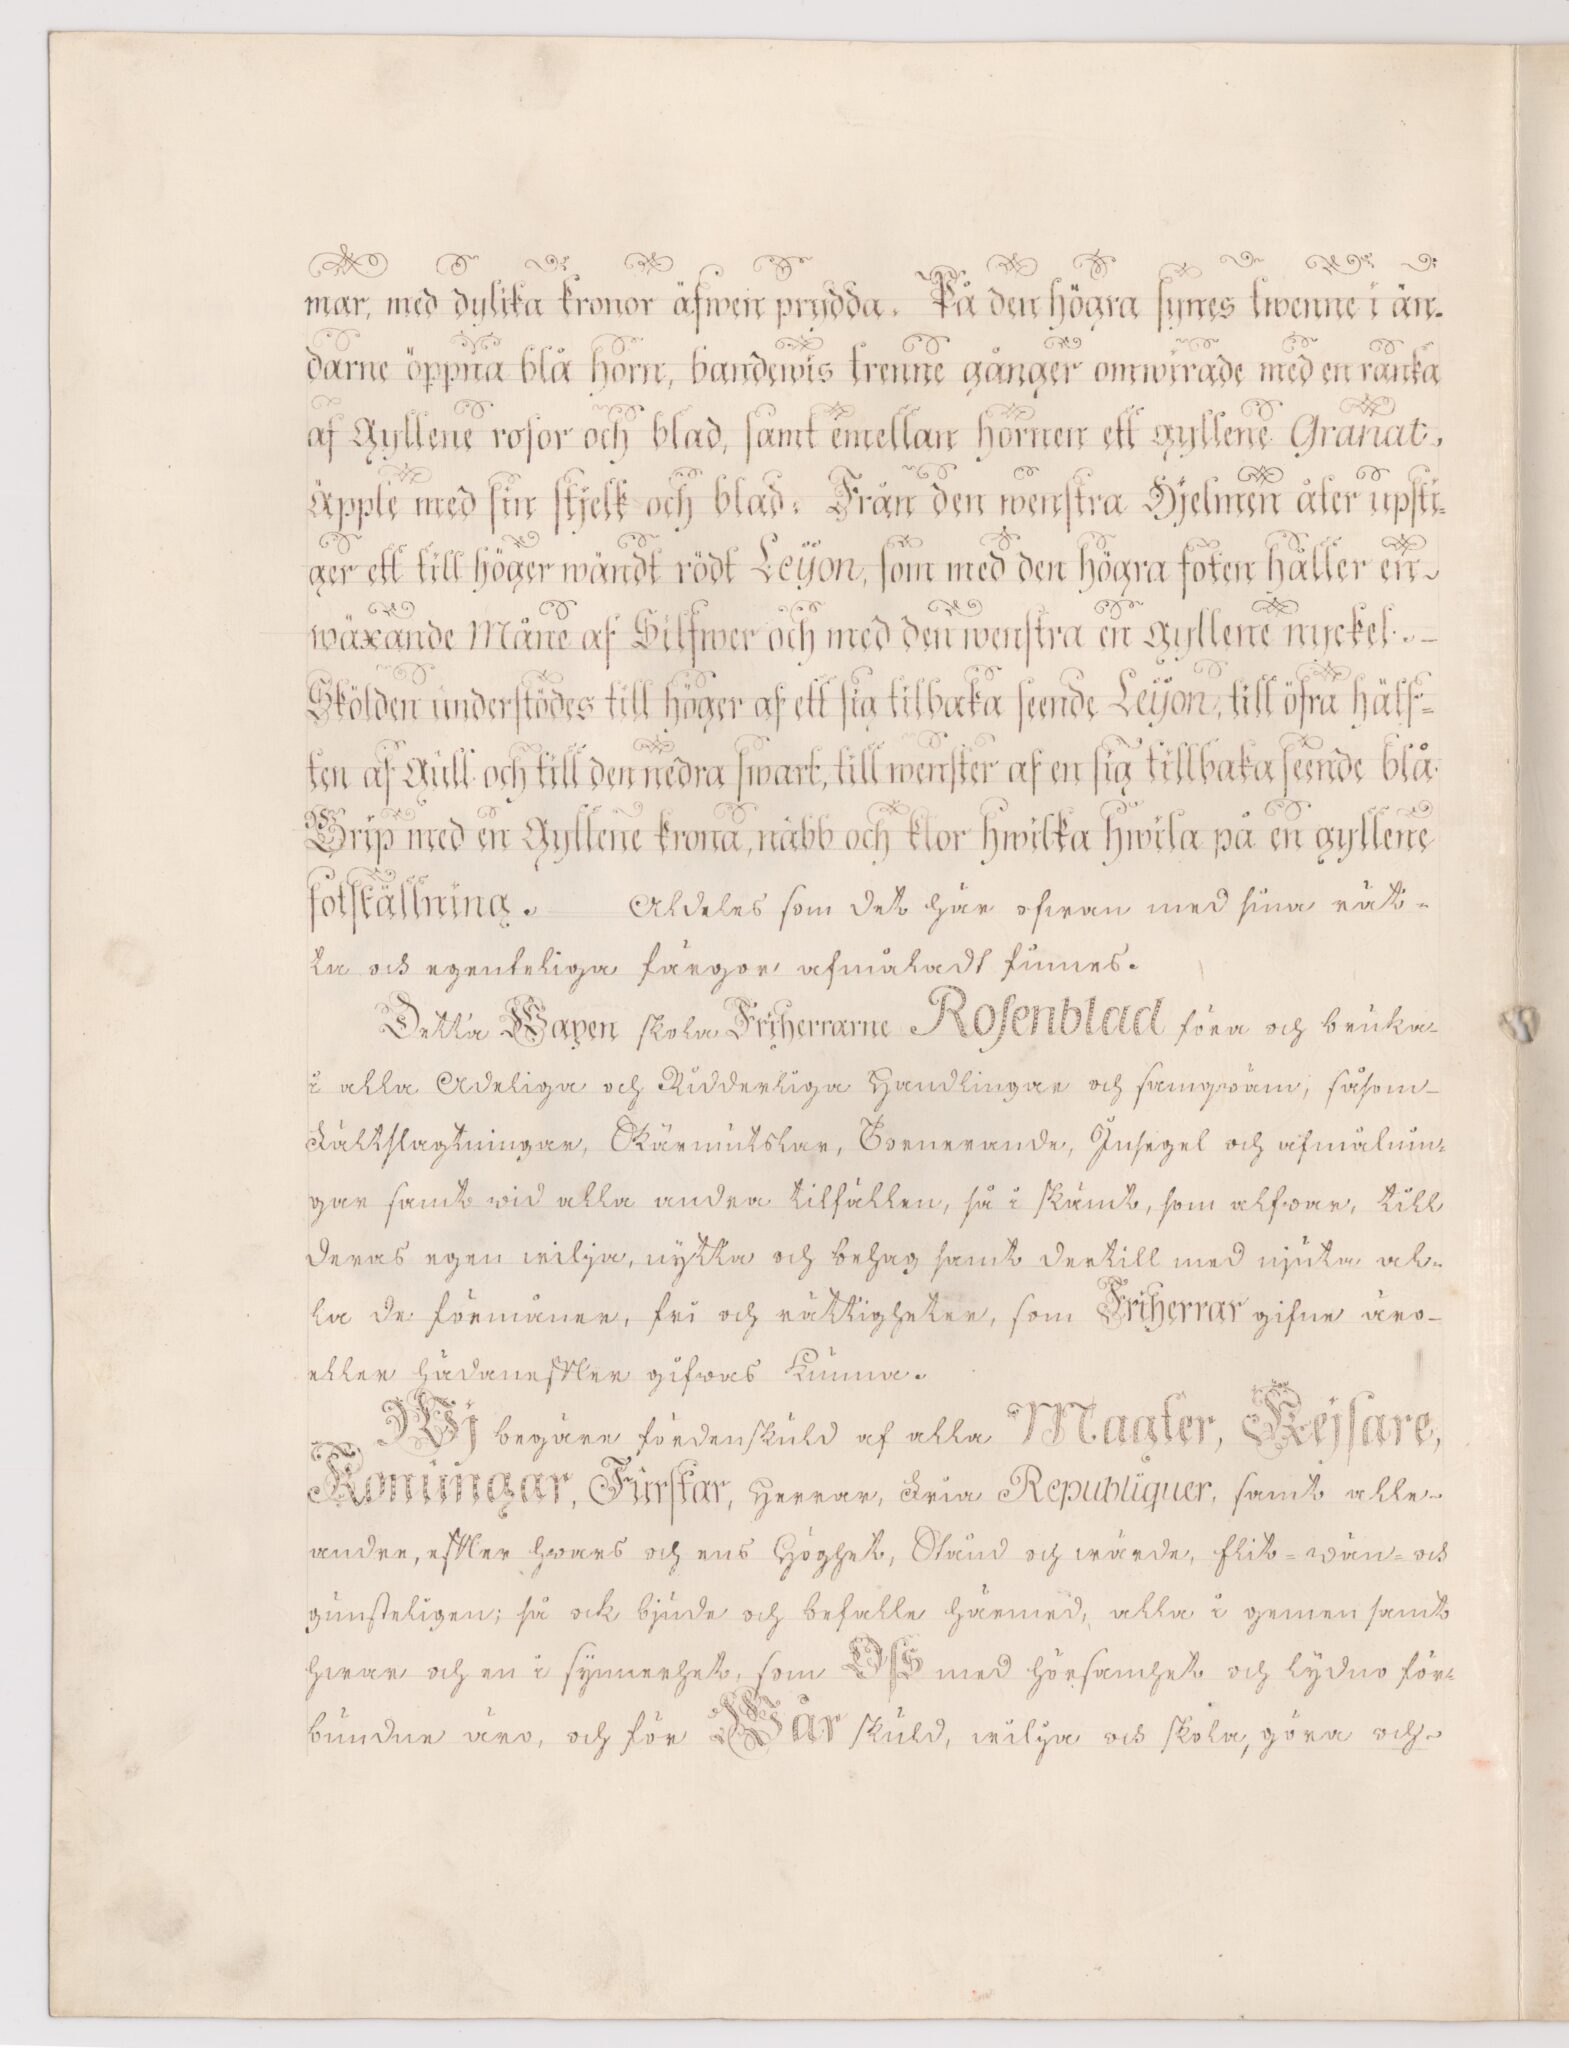 mar, med dylika kronor äfwen prydda. På den högra synes twenne i än-
darne öppna blå horn, bandewis trenne gånger omwirade med en ranka
af Gyllene rosor och blad, samt emellan hornen ett gyllene Granat-
äpple med sin stjelk och blad. Från den wenstra Hjelmen åter upsti-
ger ett till höger wändt rödt Leÿon, som med den högra foten håller en
wäxande Måne af Silfwer och med den wenstra en Gyllene nyckel.
Skölden understödes till höger af ett sig tilbaka seende Leÿon, till öfra hälf-
ten af Gull och till den nedra swart, till wenster af en sig tillbaka seende blå
Grip med en Gyllene krona, näbb och klor hwilka hwila på en gyllene
fotställning. Aldeles som det här ofwan med sina rät-
ta och egenteliga färgor afmåladt finnes.
Detta Wapen skola Friherrarne Rosenblad föra och bruka
i alla Adeliga och Ridderliga Handlingar och samqwäm, såsom
Fältslagtningar, Skärmütslar, Tornerande, Insegel och afmålnin-
gar samt wid alla andra tilfällen, så i skämt, som alfwar, till
deras egen wilja, nytta och behag samt dertill med njuta al-
la de förmåner, fri och rättigheter, som Friherrar gifne äro
eller hädanefter gifwas kunna.
Wj begäre fördenskuld af alla Magter, Kejsare,
Konungar, Furstar, Herrar, Fria Republiquer, samt alle
andre, efter hwars och ens Höghet, Stånd och wärde, flit- wän- och
gunsteligen; så ock bjude och befalle härmed, alla i gemen samt
hwar och en i synnerhet, som Oss med hörsamhet och lydno för-
bundne äro, och för Wår skuld, wilja och skola, göra och